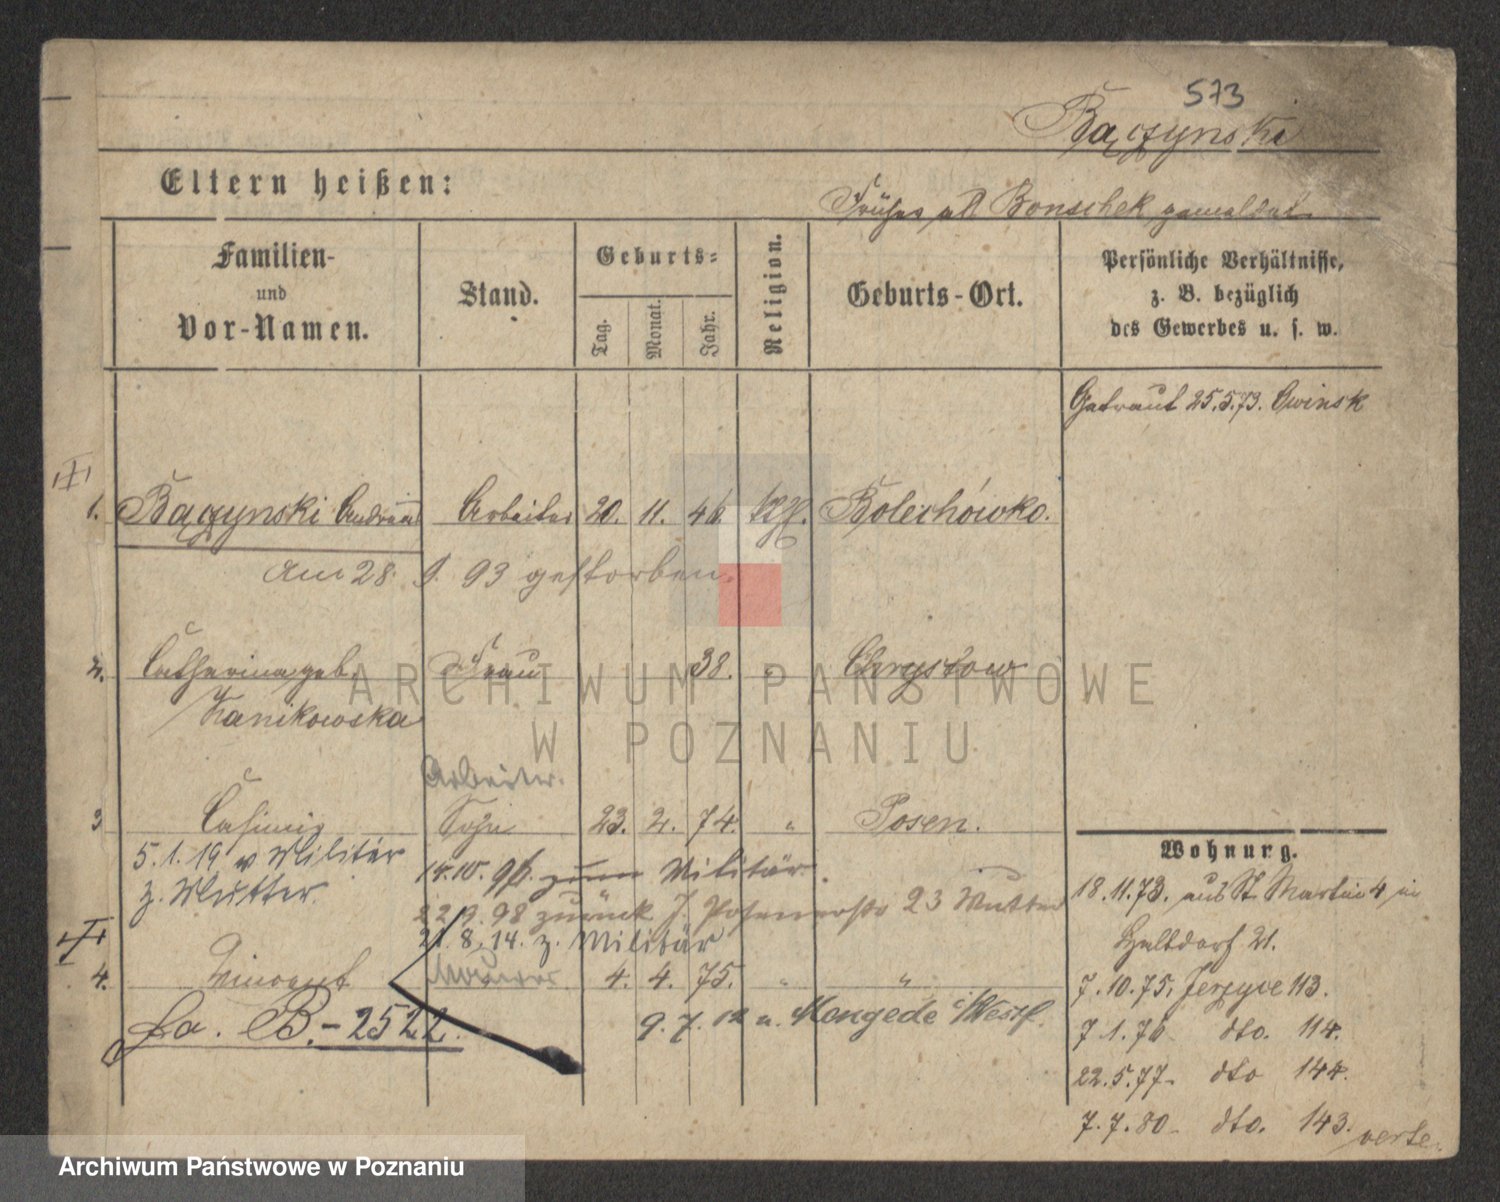 573
Bączynski
Eltern heißen:
Früher als Bonschek gemeldet.
Familien-
und
Vor-Namen.
Stand.
Geburts-
Tag.
Monat.
Jahr.
Religion.
Geburts-Ort.
Persönliche Verhältnisse,
z. B. bezüglich
des Gewerbes u. s. w.
Getraut 25.5.73.
1. Bączynski Andreas Arbeiter 20. 11. 46. kth. Bolechówko.
am 28. 9. 93 gestorben.
2. Catharina geb. Frau 38. " Chrystow
Kanikowska
Arbeiter.
3 Casimir Sohn 23. 2. 74. " Posen.
5.1.19 v Militär
z. Mutter.
14.10. 96. zum Militär.
22.9.98 zurück 23 Mutter
21.8.14. z. Militär
4. Vincent Maurer 4. 4. 75. " "
fa. B.-2522.
9.7.12 n. Mengede i/Westf.
Wohnung.
18.11.73. aus St. Martin 4 in
Haltdorf 21.
7.10.75. Jerzyce 113.
7.1.76. dto. 114.
22.5.77. dto 144.
7.7.80. dto. 143.
verte.
ARCHIWUM PAŃSTWOWE
W POZNANIU
Archiwum Państwowe w Poznaniu